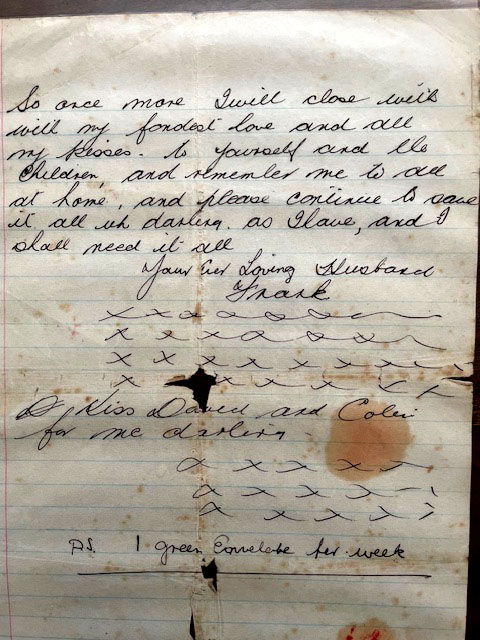 So once more I will close with
with my fondest love and all
my kisses. to yourself and the
Children, and remember me to all
at home, and please continue to save
it all uh darling. as I have, and I
shall need it all
Your Ever Loving Husband
Frank
x x x x x x
x x x x x x
x x x x x x x x
x x x x x x
Kiss David and Colin
for me darling
x x x x x
x x x x x
x x x x x
P.S. 1 green Envelope per week